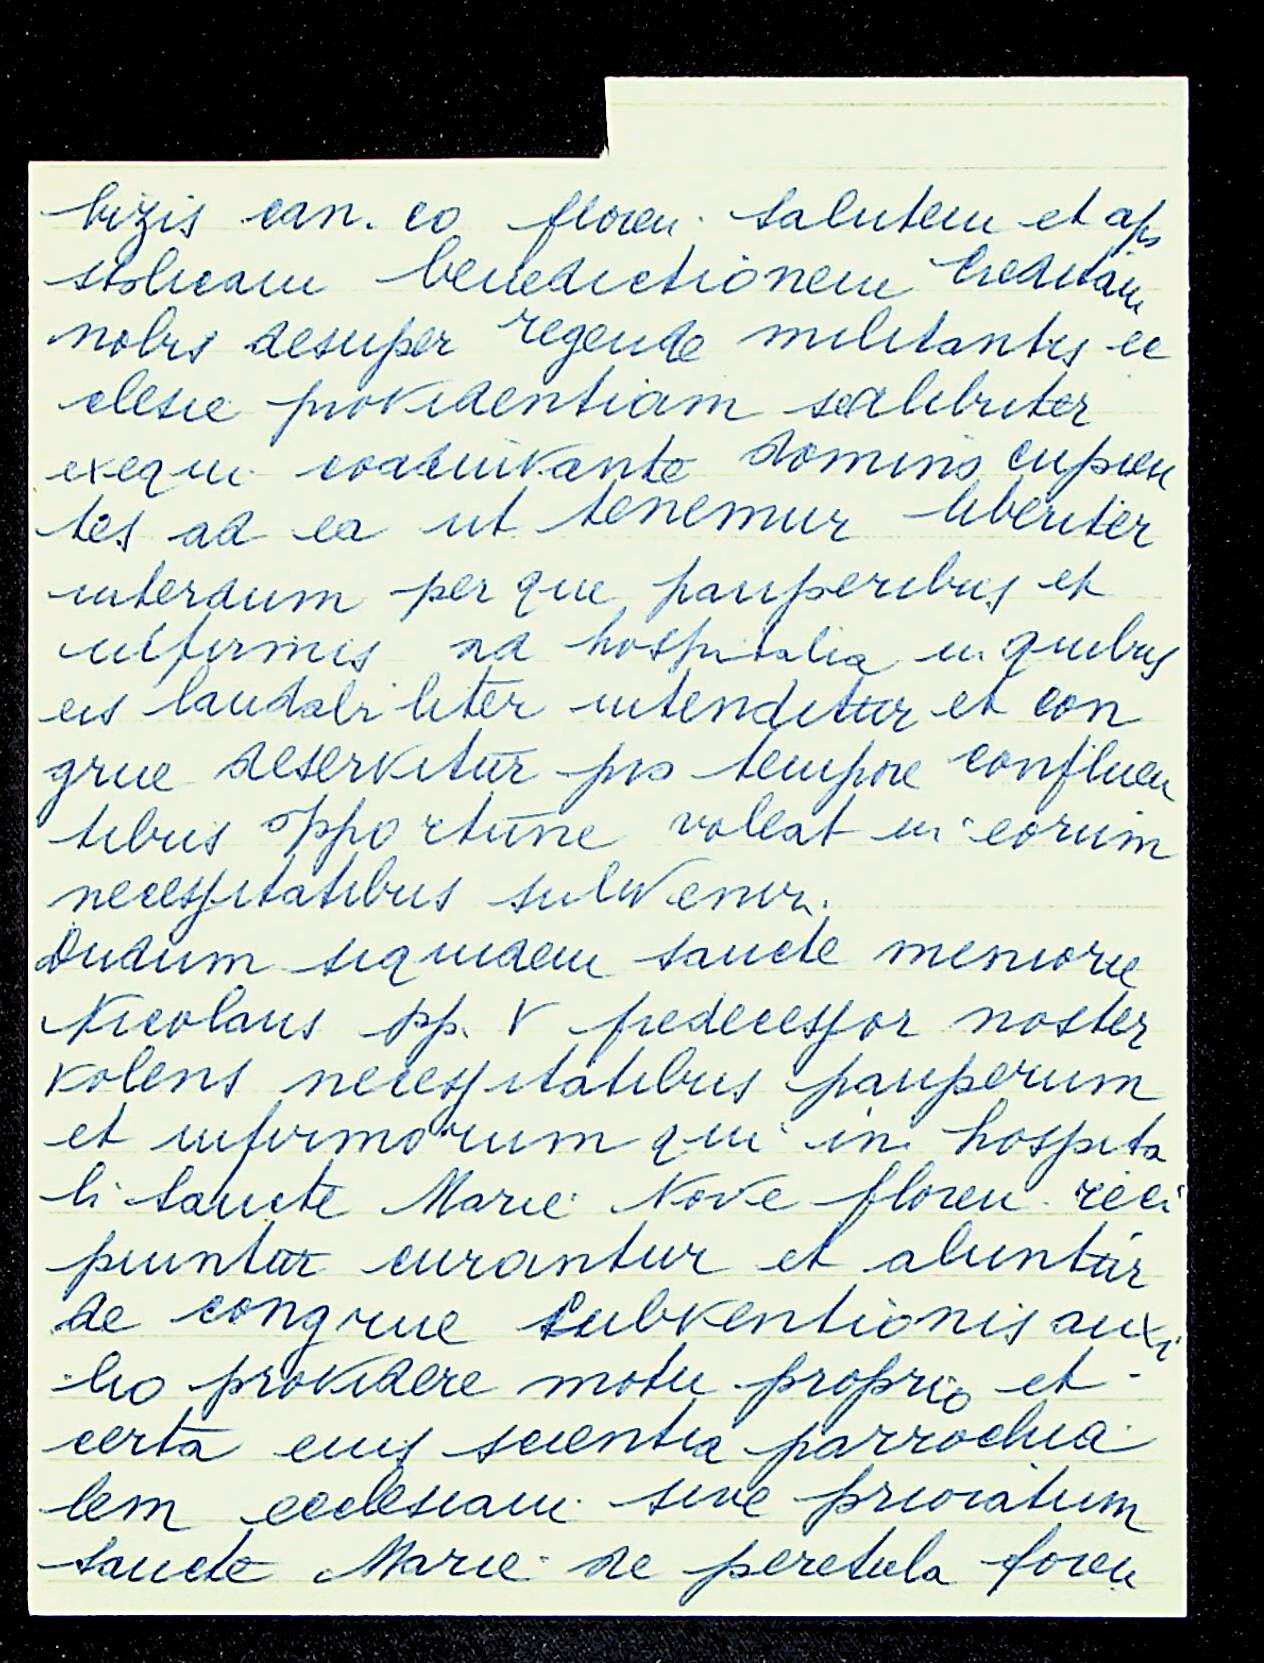 bizis can. co floren. Salutem et apo
stolicam benedictionem Creditam
nobis desuper regende militantis ec
clesie providentiam salubriter
exequi coadiuvante domino cupien
tes ad ea ut tenemur libenter
interdum per que pauperibus et
infirmis ad hospitalia in quibus
eis laudabiliter intenditur et con
grue deservitur pro tempore confluen
tibus opportune valeat in eorum
necessitatibus subvenire.
Dudum siquidem sancte memorie
Nicolaus pp. V predecessor noster
volens necessitatibus pauperum
et infirmorum qui in hospita
li Sancte Marie Nove floren. reci
piuntur curantur et aluntur
de congrue subventionis auxi
lio providere motu proprio et -
certa eius scientia parrochia
lem ecclesiam sive prioratum
Sancte Marie de peretula floren